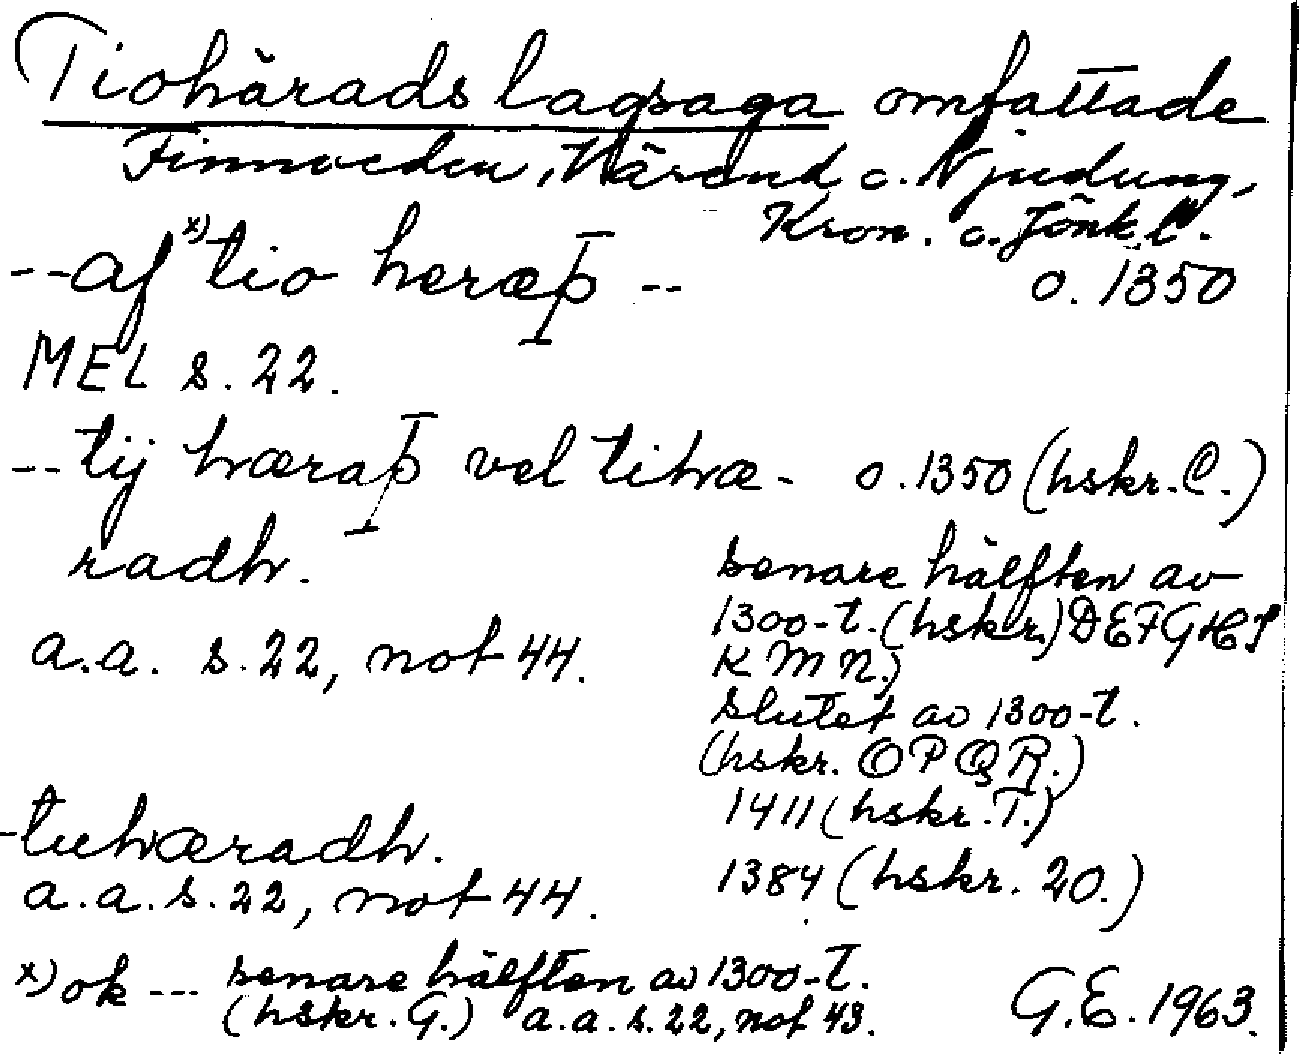 Tiohärads lagsaga omfattade
Finnveden, Värend o. Njudung,
Kron. o. Jönk.l.
--af x) tio heræþ -- o. 1350
MEL s. 22.
-- tij hæraþ vel tihæ- o. 1350 (hskr. C.)
radh. senare hälften av
1300-t. (hskr.) D E F G H I
a.a. s. 22, not 44. K M N.)
slutet av 1300-t.
(hskr. O P Q R.)
1411 (hskr. T.)
-tuhæradh.
a.a. s. 22, not 44. 1384 (hskr. 20.)
x) ok --- senare hälften av 1300-t.
(hskr. G.) a.a. s. 22, not 43. G.E. 1963.